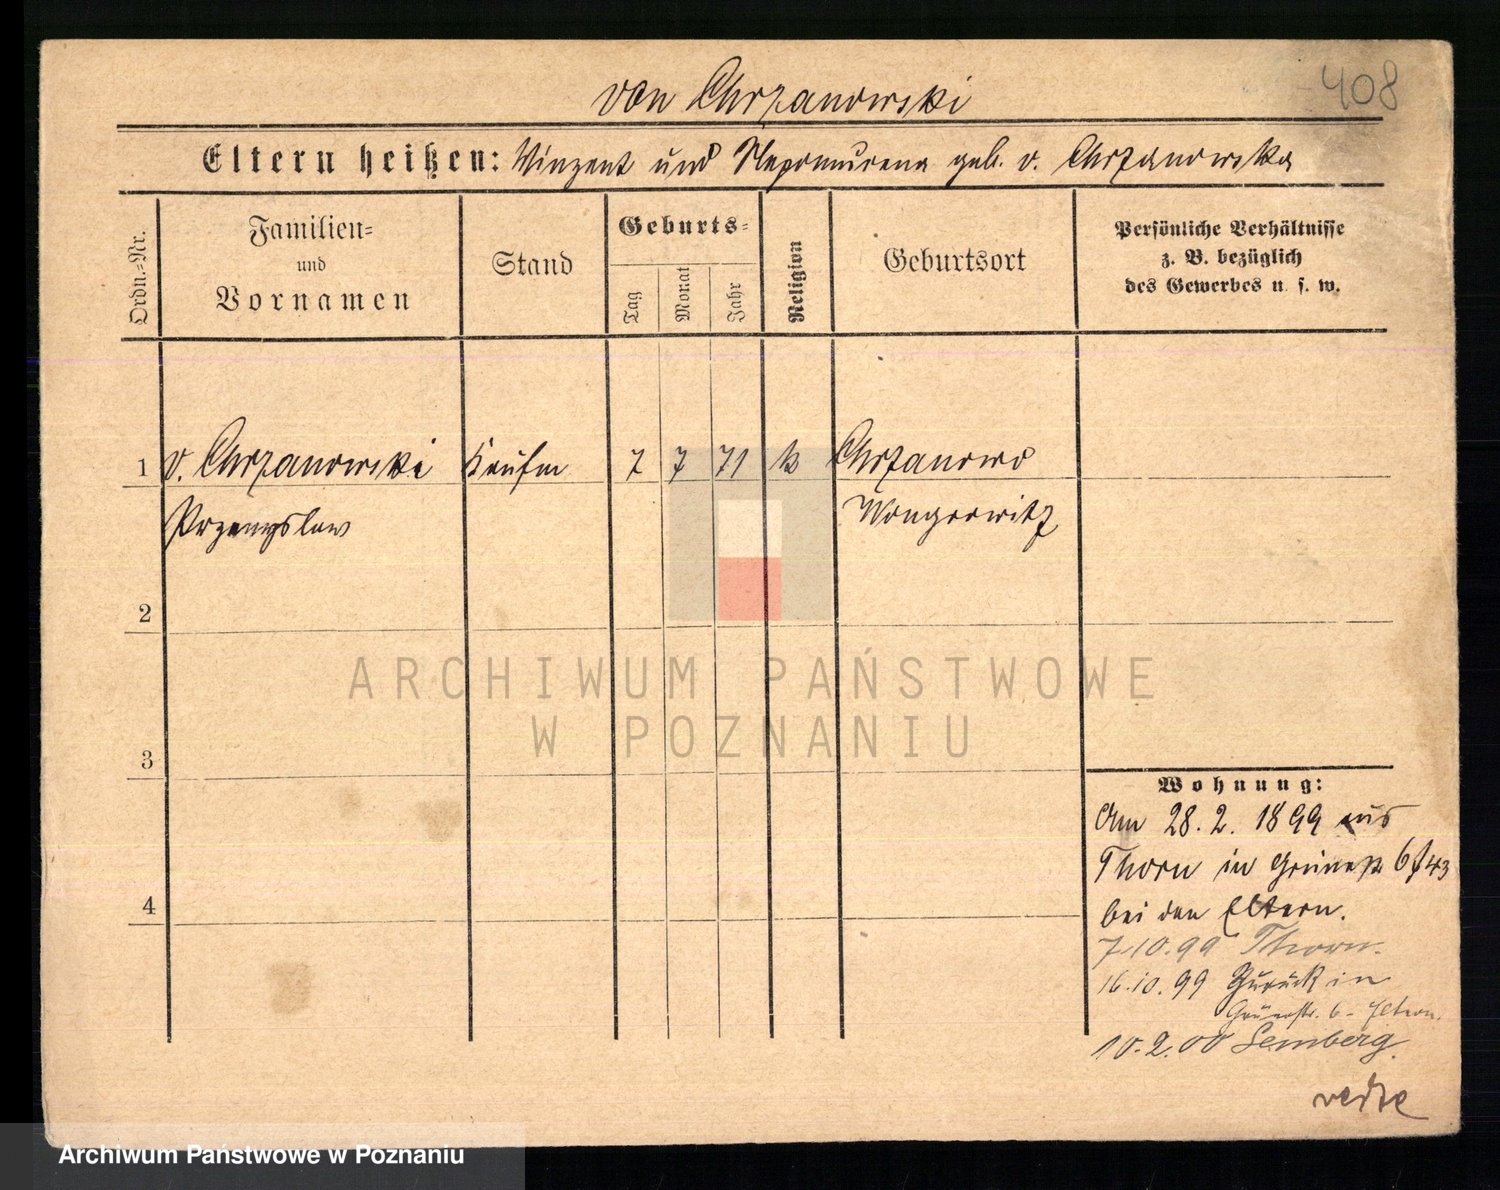 408
von Chrzanowski
Eltern heißen: Winzent und Nepomucena geb. v. Chrzanowska
Ordn.-Nr.
Familien-
und
Vornamen
Stand
Geburts-
Tag
Monat
Jahr
Religion
Geburtsort
Persönliche Verhältnisse
z. B. bezüglich
des Gewerbes u. s. w.
1 v. Chrzanowski Kaufm 7 7 71 k Chrzanowo
Przemyslaw Wongrowitz
2
ARCHIWUM PAŃSTWOWE
W POZNANIU
3
4
Wohnung:
Am 28. 2. 1899 aus
Thorn in Grünestr 6
bei den Eltern.
7.10.99 Thorn.
16.10.99 Zurück in
Grünestr. 6 - Eltern.
10.2.00 Lemberg.
Archiwum Państwowe w Poznaniu